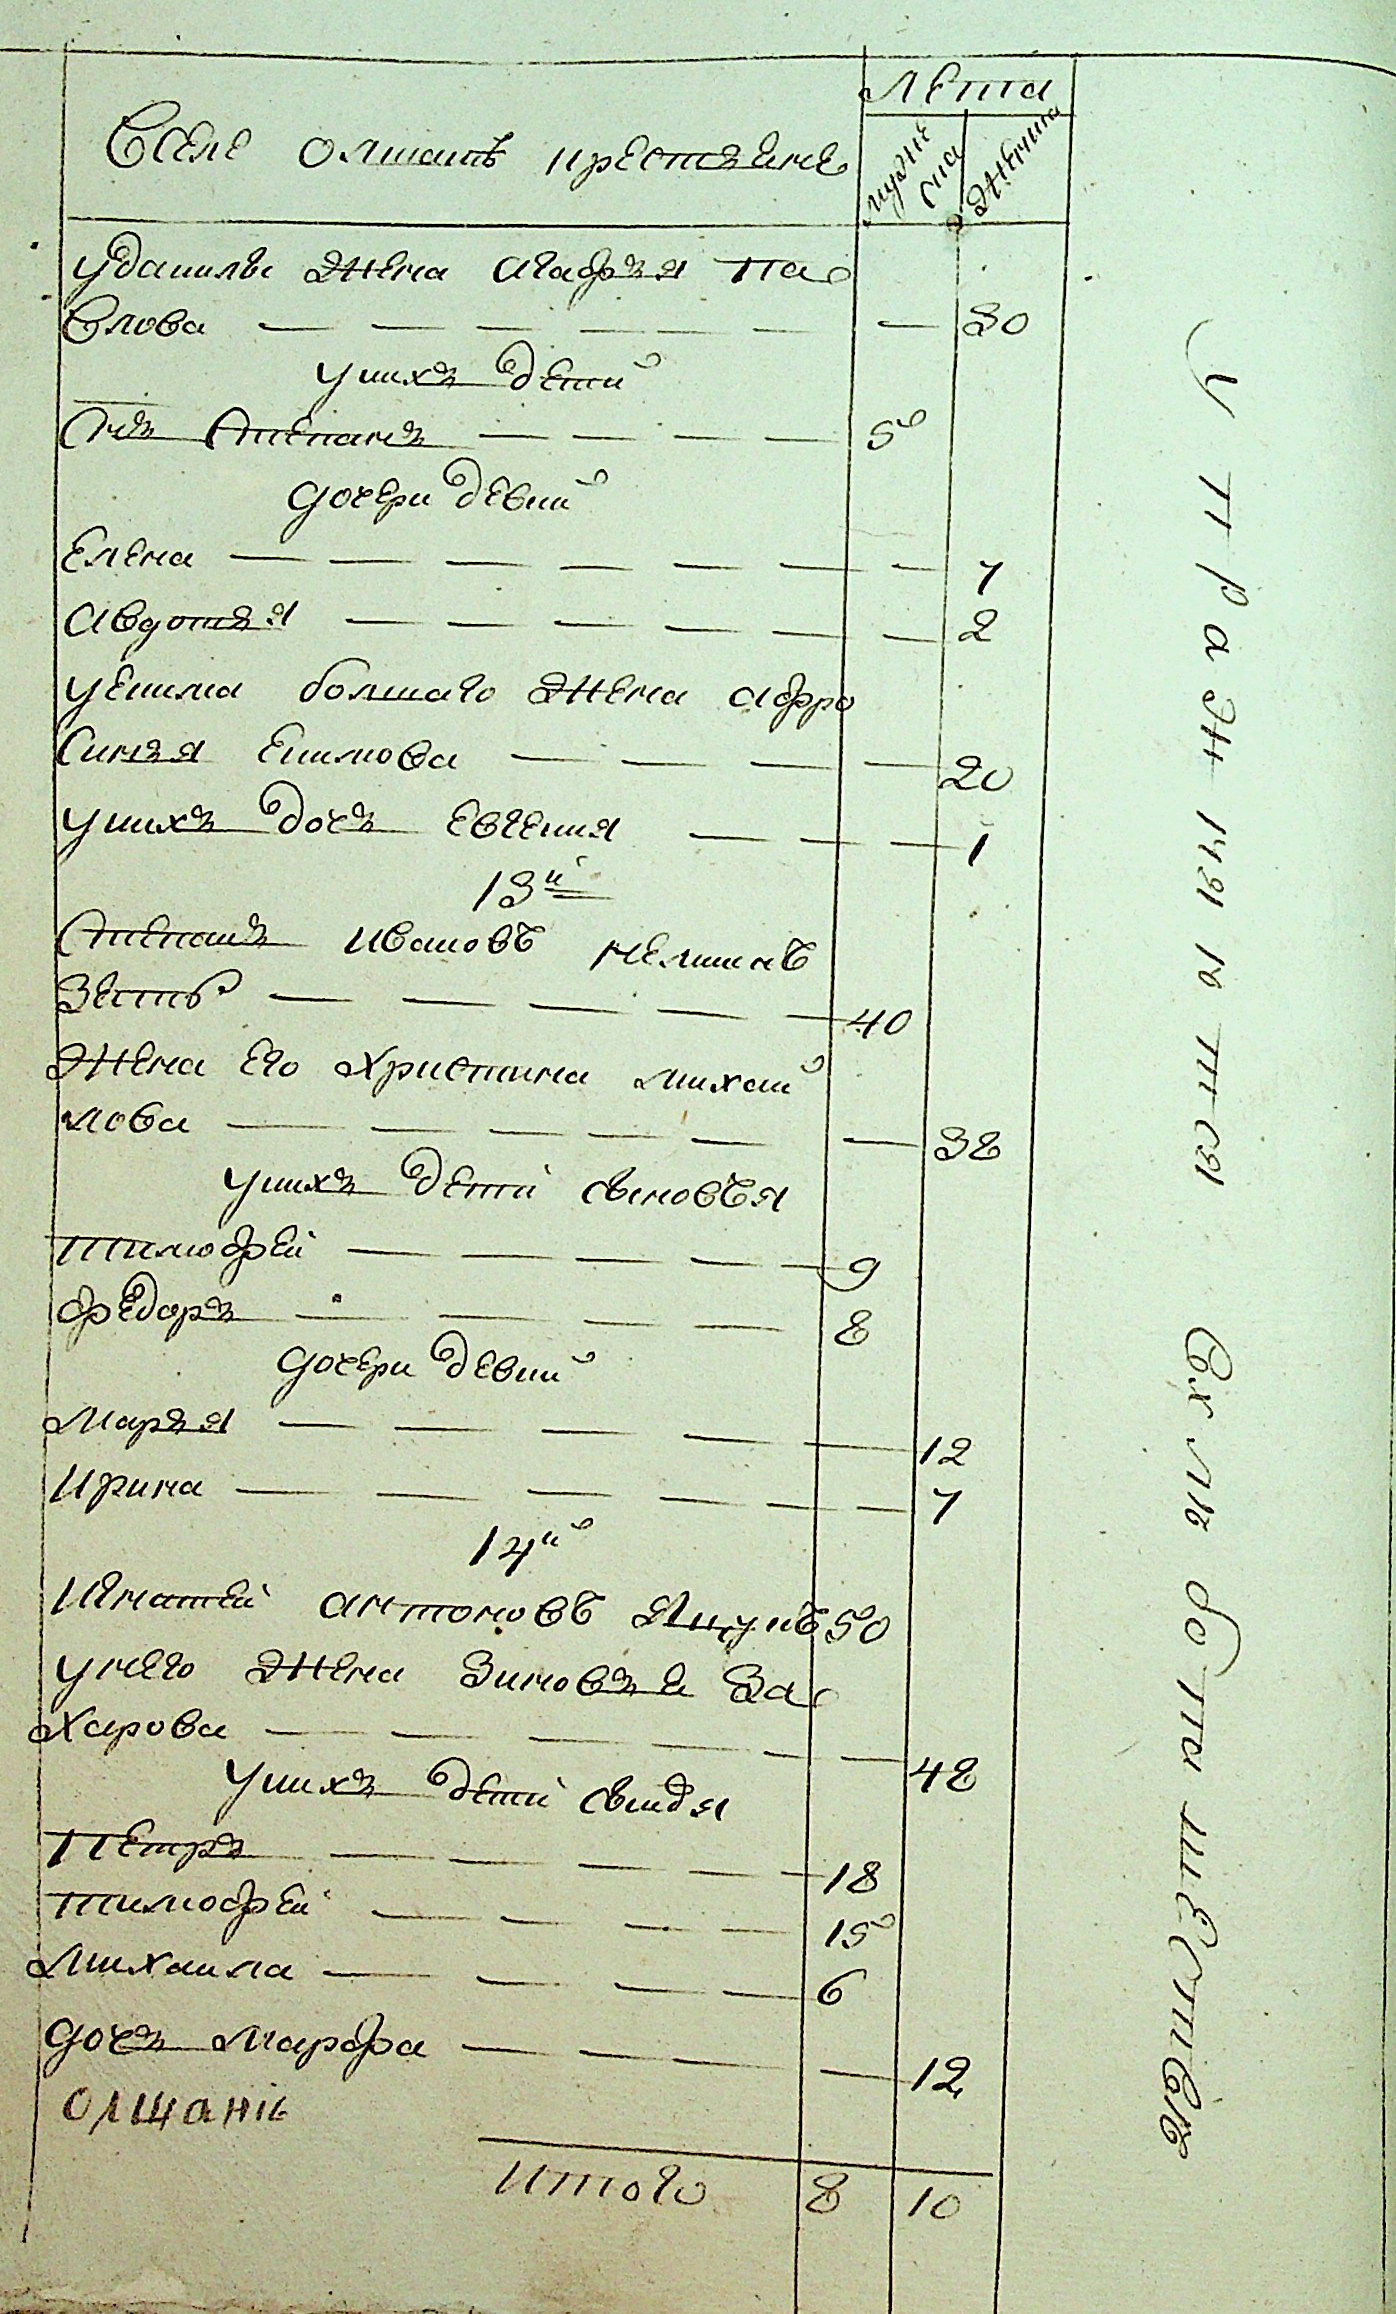 Лета
Вселе олшанъ крестьяне
мужес
ка
женска
уданилы жена агафья па
влова — — — — — — — 30
унихъ детей
Снъ Степанъ — — — — 5
дочери девки
Елена — — — — — — — 7
авдотья — — — — — — 2
уекима болшаго жена афро
Синья Екимова — — — — 20
унихъ дочь евгения — — — 1
13й
Степанъ ивановъ
— — — — — 40
Жена Его христина михаи
лова — — — — — — 38
унихъ детей сыновья
тимофей — — — — — 9
федоръ — — — — — 8
дочери девки
марья — — — — — 12
Ирина — — — — — — 7
14й
Игнатей антоновъ 50
унего жена Зиновья За
харова — — — — — — 48
унихъ детей
Петръ — — — — — 18
тимофей — — — — 15
михаила — — — — 6
дочь марфа — — — — — 12
Олшаніе
Итого 8 10